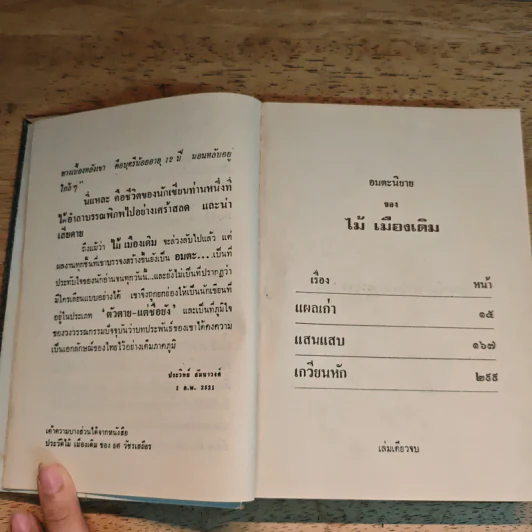 ทางเบื้องหลังเขา คือบุตรีน้อยอายุ 12 ปี นอนหลับอยู่
ใกล้ ๆ"
นี่แหละ คือชีวิตของนักเขียนท่านหนึ่งที่
ได้อำลาบรรณพิภพไปอย่างเศร้าสลด และน่า
เสียดาย
ถึงแม้ว่า ไม้ เมืองเดิม จะล่วงลับไปแล้ว แต่
ผลงานทุกชิ้นที่เขาบรรจงสร้างขึ้นยังเป็น อมตะ...เป็นที่
ประทับใจของนักอ่านจนทุกวันนี้...และยังไม่เป็นที่ปรากฏว่า
มีใครเลียนแบบอย่างได้ เขาจึงถูกยกย่องให้เป็นนักเขียนที่
อยู่ในประเภท "ตัวตาย-แต่ชื่อยัง" และเป็นที่ภูมิใจ
ของวงวรรณกรรมปัจจุบันว่าบทประพันธ์ของเขาได้คงความ
เป็นเอกลักษณ์ของไทยไว้อย่างเต็มภาคภูมิ
ประวิทย์ สัมมาวงศ์
1 ก.พ. 2521
เค้าความบางส่วนได้จากหนังสือ
ประวัติไม้ เมืองเดิม ของ ยศ วัชรเสถียร
อมตะนิยาย
ของ
ไม้ เมืองเดิม
เรื่อง หน้า
แผลเก่า ๑๕
แสนแสบ ๑๖๗
เกวียนหัก ๒๙๙
เล่มเดียวจบ